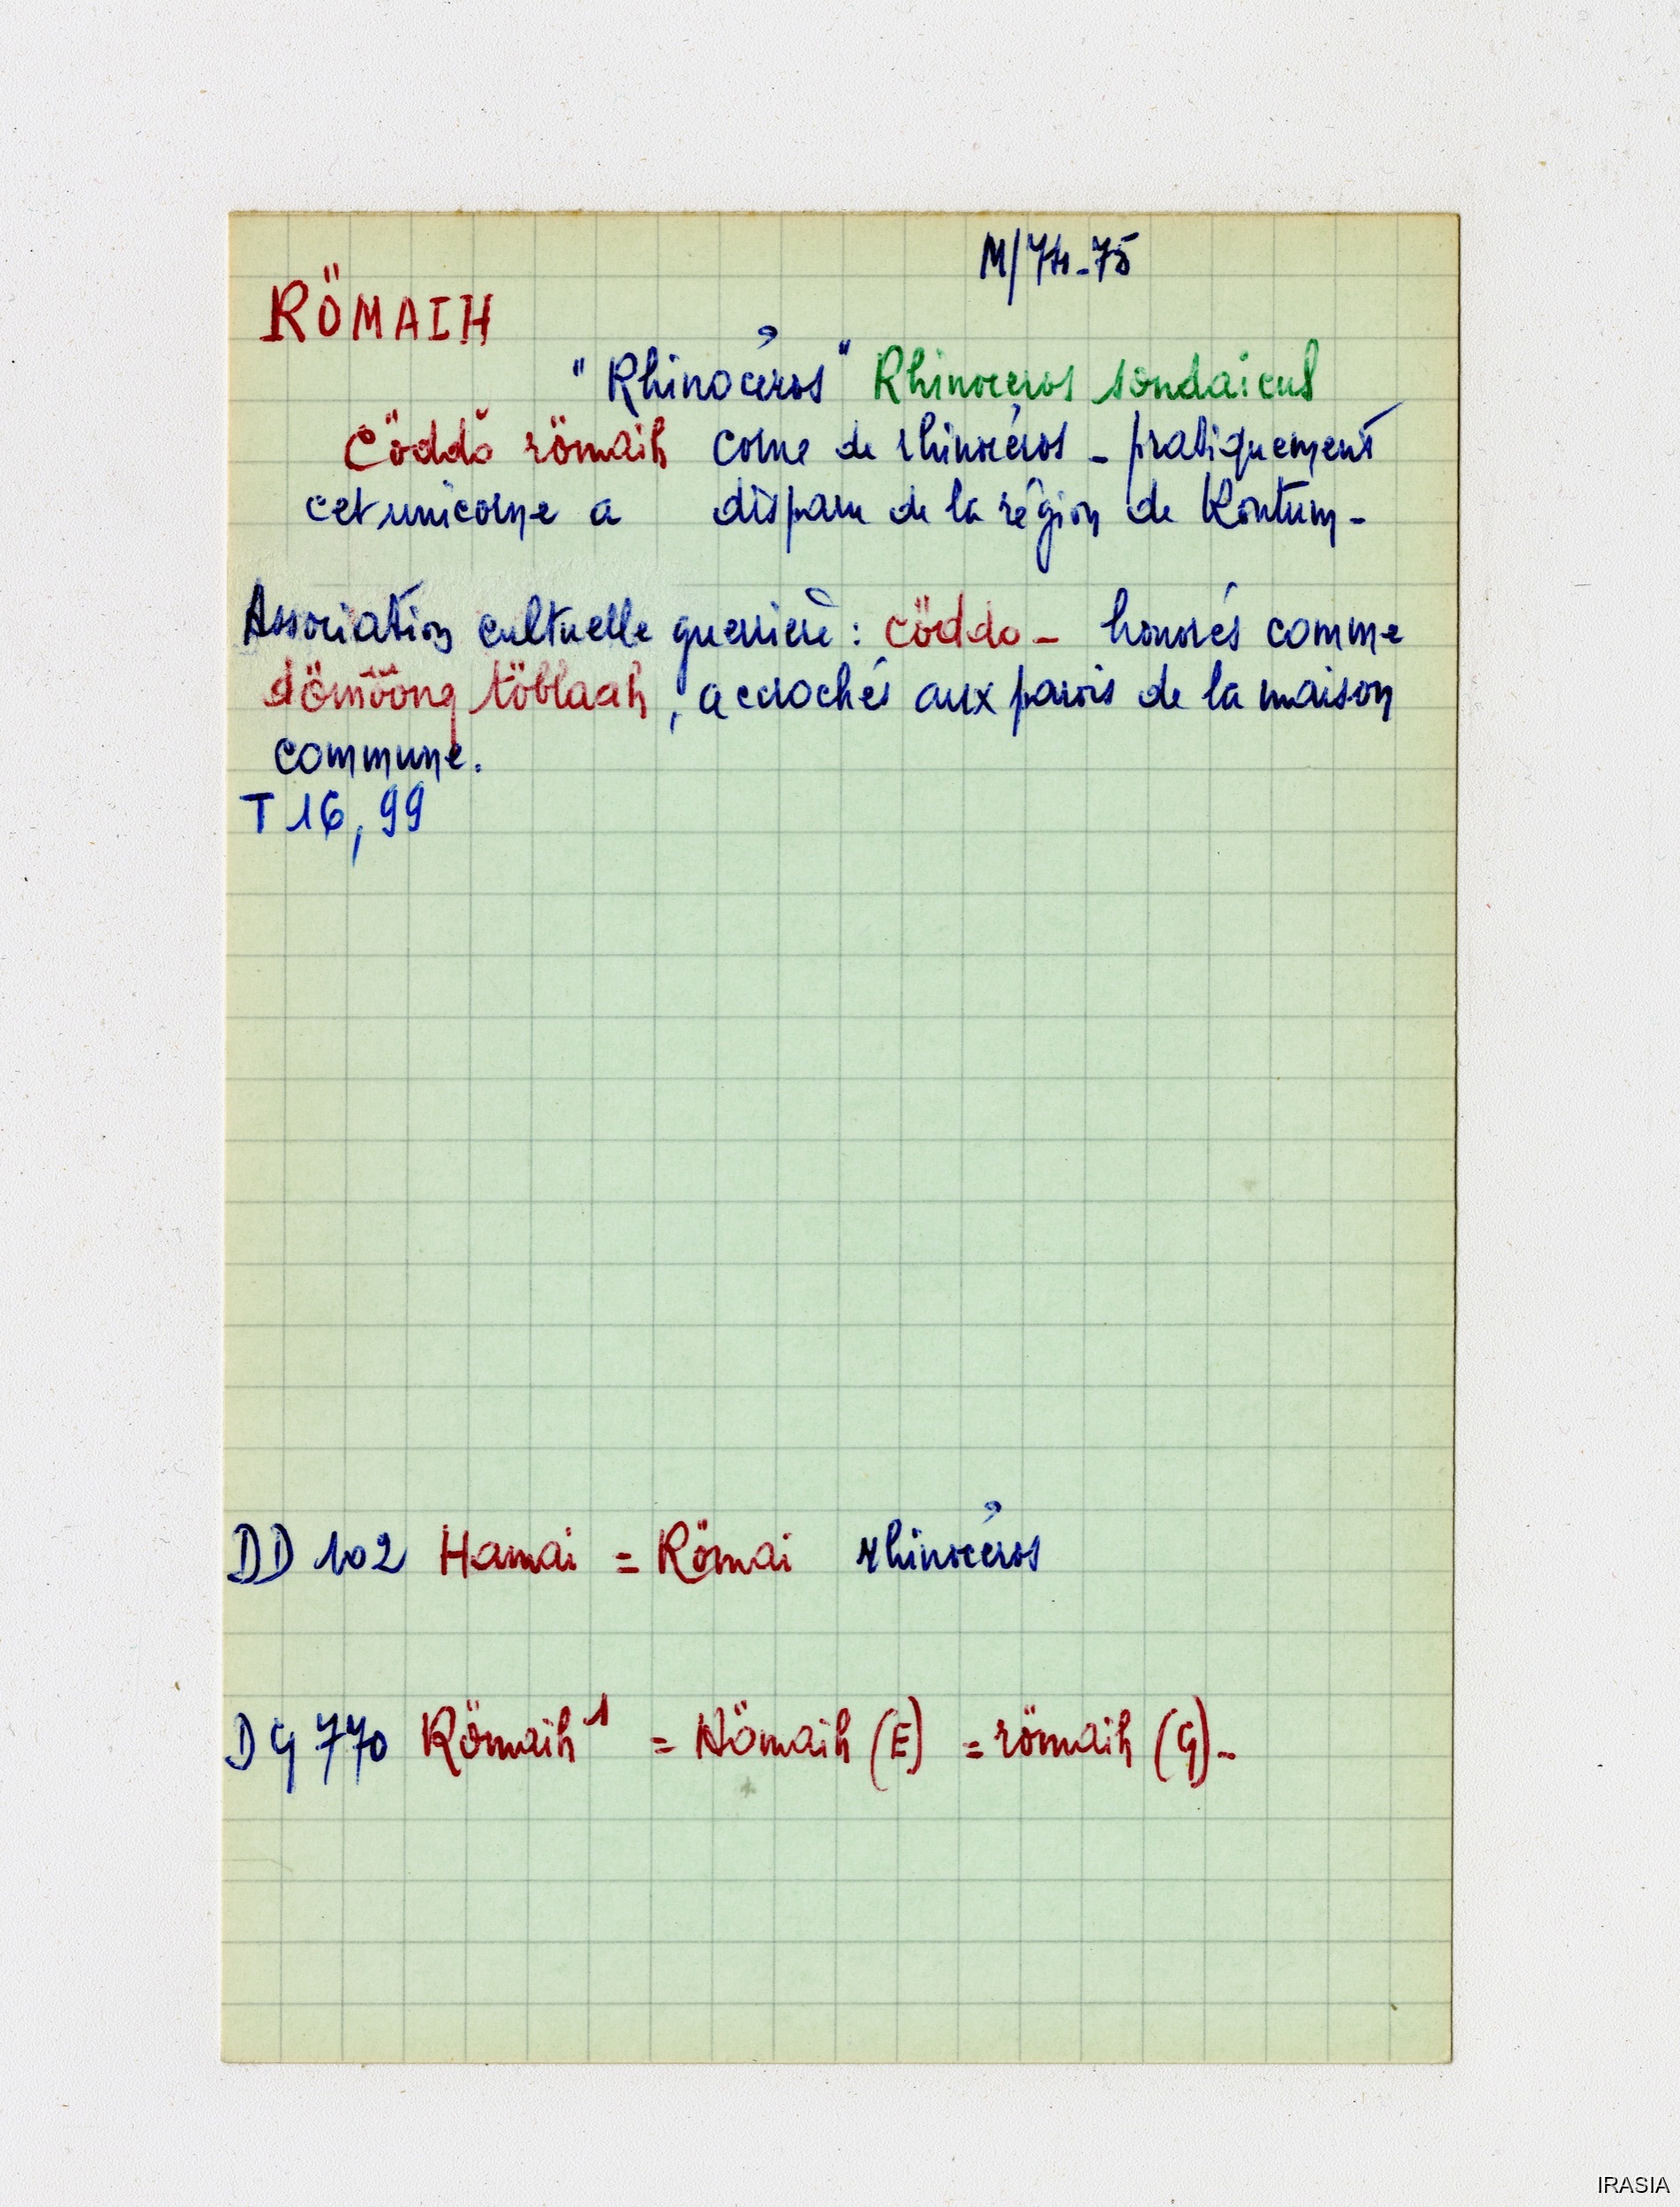 M/74-75
RÖMAIH
"Rhinocéros" Rhinoceros sondaïcus
Cöddŏ römaih corne de rhinocéros - pratiquement
cet unicorne a disparu de la région de Kontum -
Association cultuelle guerrière : cöddo - honorés comme
dömöông töblaah, accrochés aux parois de la maison
commune.
T 16, 99
DD 102 Hamai = Römai rhinocéros
DG 770 Römaih¹ = Hömaih (E) = römaih (G) -
IRASIA